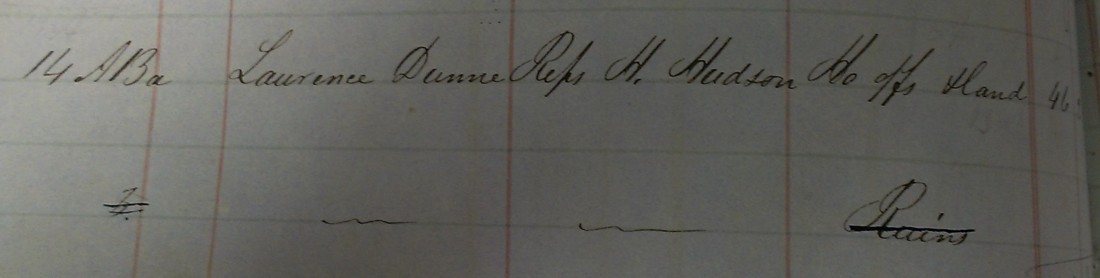 14 ABa Laurence Dunne Reps H. Hudson Ho offs & land 46
Ruins